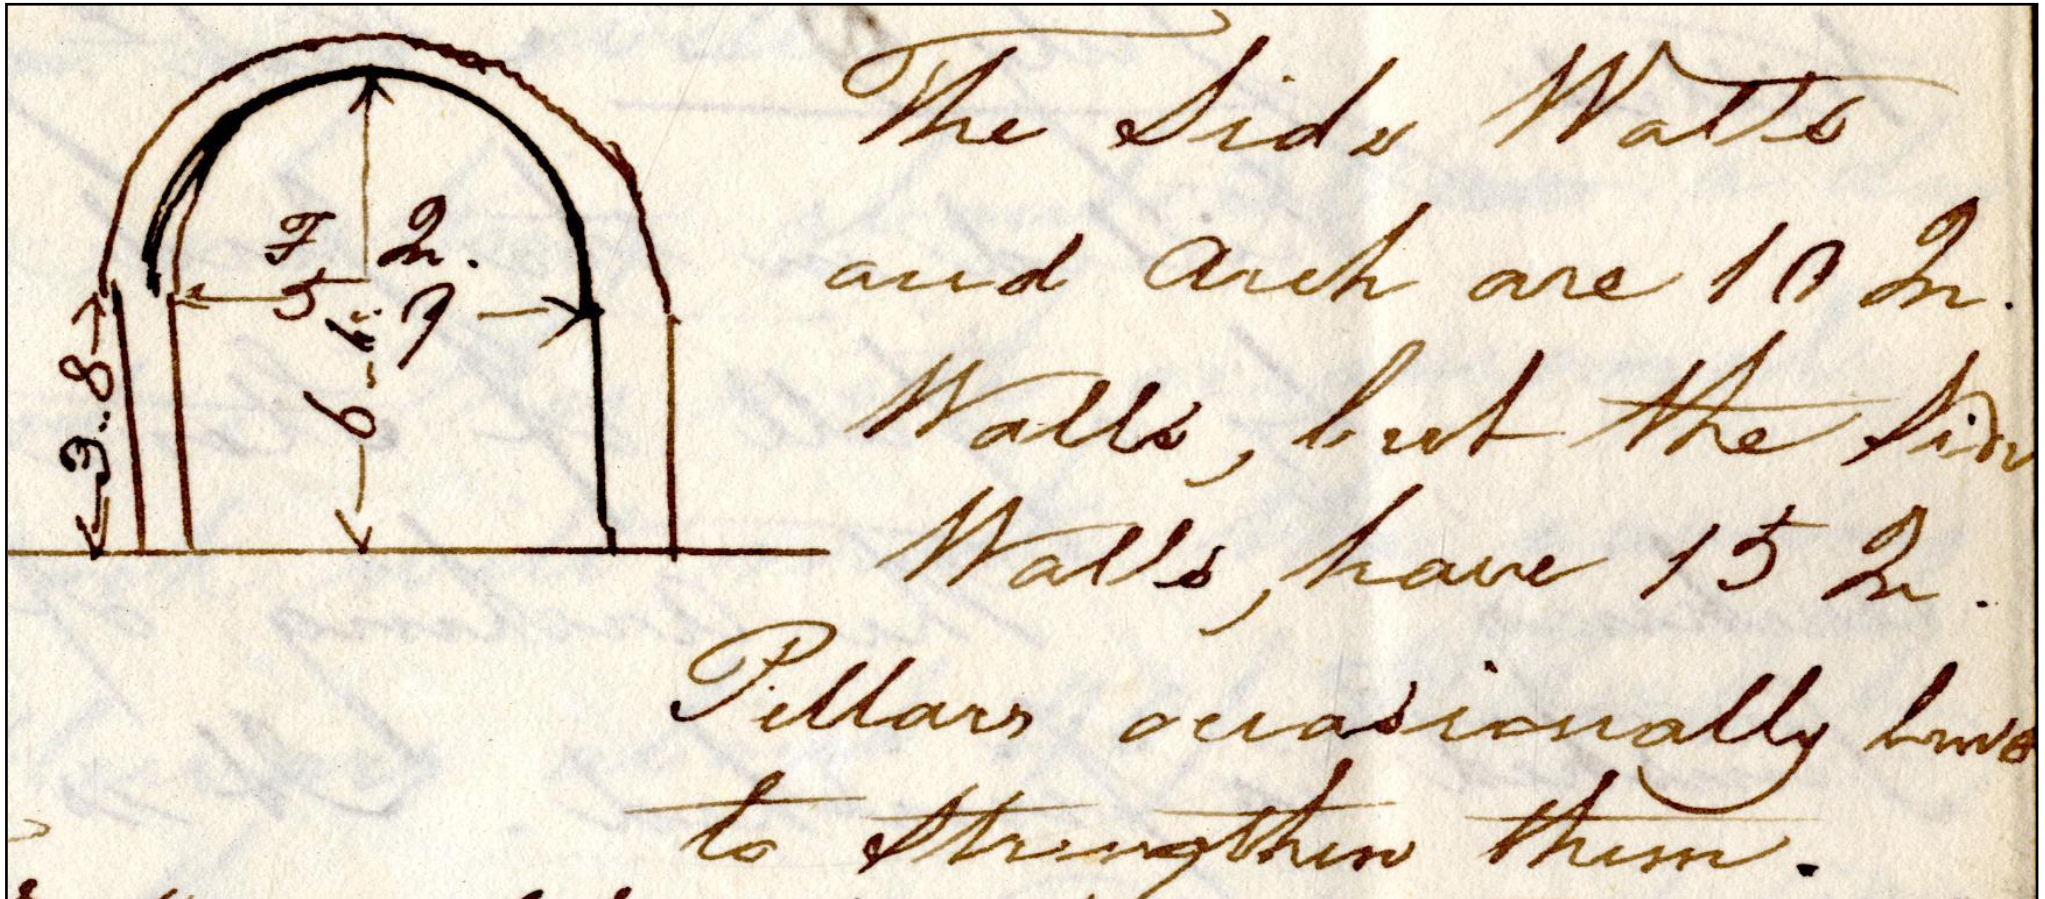 The Side Walls
and Arch are 10 In.
Walls, but the Side
Walls, have 15 In.
Pillars occasionally
to strengthen them.
F In.
5 " 7
6 - 4
3 .. 8